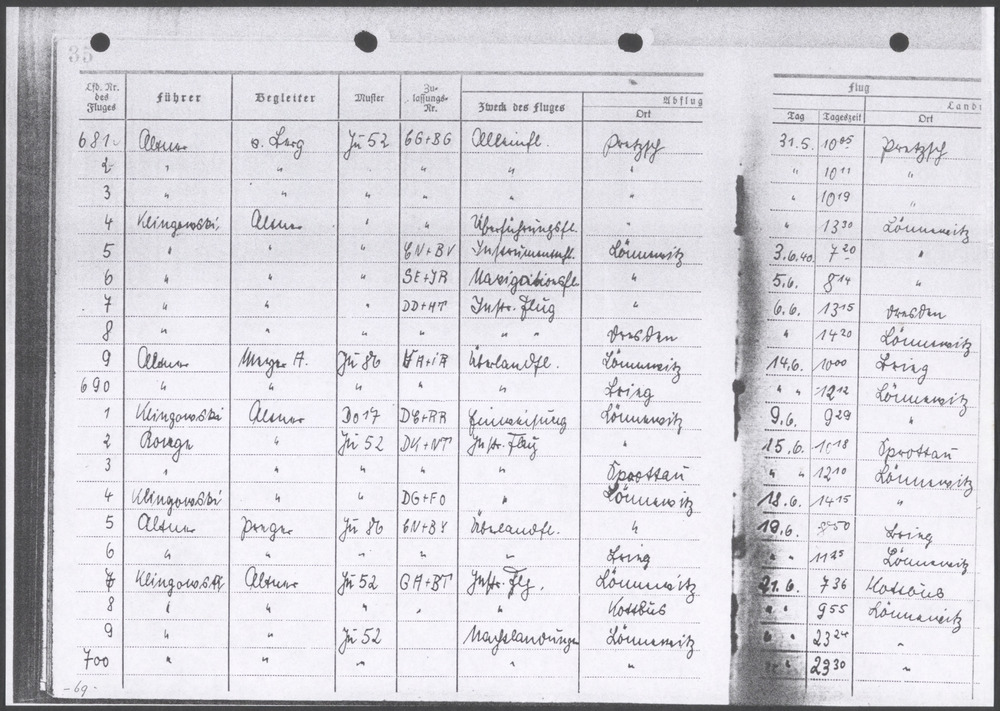 35
Lfd. Nr. des Fluges Führer Begleiter Muster Zulassungs-Nr. Zweck des Fluges Abflug Ort Flug Tag Tageszeit Landu Ort
681. Altner v. Berg Ju 52 GG+BG Alleinfl. Pretzsch 31.5. 10 05 Pretzsch
2 " " " " " " " 10 11 "
3 " " " " " " " 10 19 "
4 Klingowski Altner " " Überführungsfl. " " 13 30 Lönnewitz
5 " " " CN+BV Instrumentenfl. Lönnewitz 3.6.40. 7 20 "
6 " " " SE+JR Navigationsfl. " 5.6. 8 14 "
7 " " " DD+HT Instr. Flug " 6.6. 13 15 Dresden
8 " " " " " " Dresden " 14 20 Lönnewitz
9 Altner Meyer A. Ju 86 Überlandfl. Lönnewitz 14.6. 10 00 Brieg
690 " " " " " Brieg " " 12 12 Lönnewitz
1 Klingowski Altner Do 17 DE+RR Einweisung Lönnewitz 9.6. 9 29 "
2 Ju 52 Instr. Flug " 15.6. 10 18 Sprottau
3 " " " " " Sprottau " " 12 10 Lönnewitz
4 Klingowski " " DG+FO " Lönnewitz 18.6. 14 15 "
5 Altner Preger Ju 86 Überlandfl. " 19.6. 50 Brieg
6 " " " " " Brieg " " 11 25 Lönnewitz
7 Klingowski Altner Ju 52 GA+BT Instr. Flg. Lönnewitz 21.6. 7 36 Kottbus
8 " " " " " Kottbus " " 9 55 Lönnewitz
9 " " Ju 52 Nachtlandungen Lönnewitz " " 23 24 "
700 " " " " " " " 23 30 "
-69-